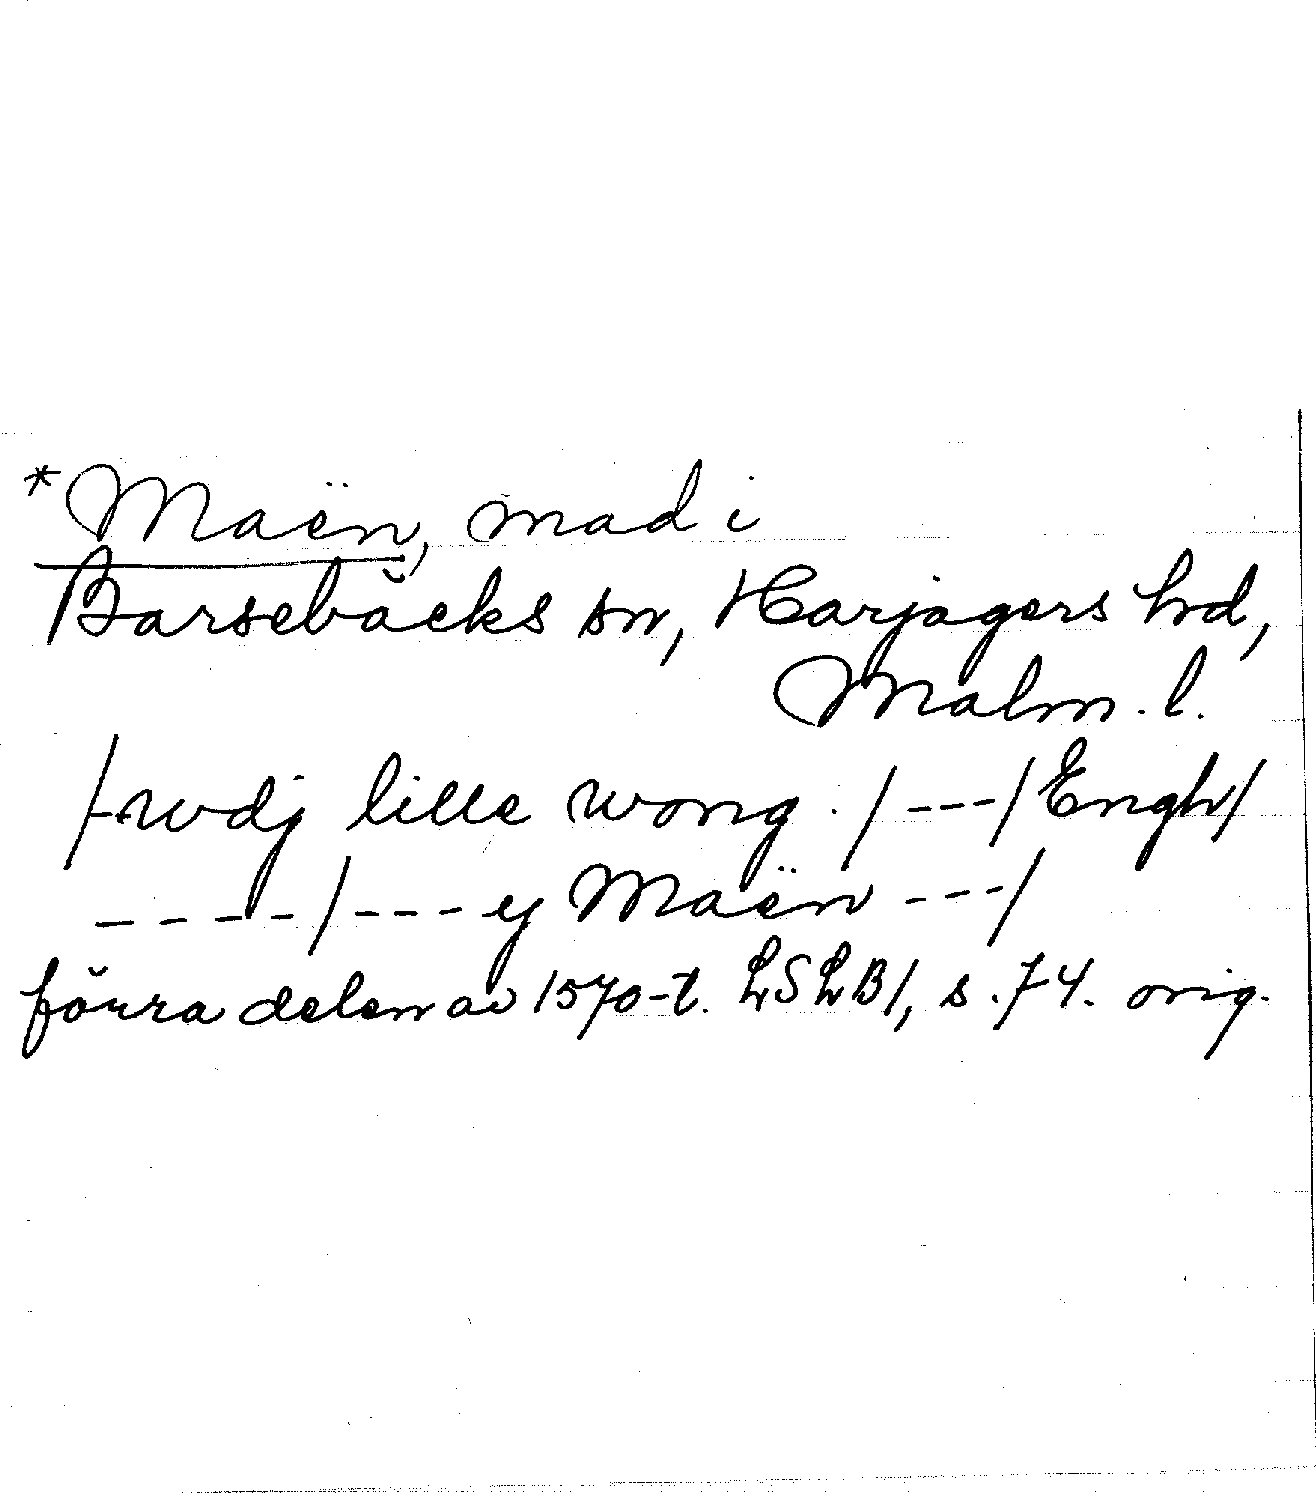 *Maën, mad i
Barsebäcks sn, Harjagers hd,
Malm. l.
/-wdj lille wong. /---/Engh/
----/---y Maën ---/
förra delen av 1570-t. LSLB1, s. 74. orig.